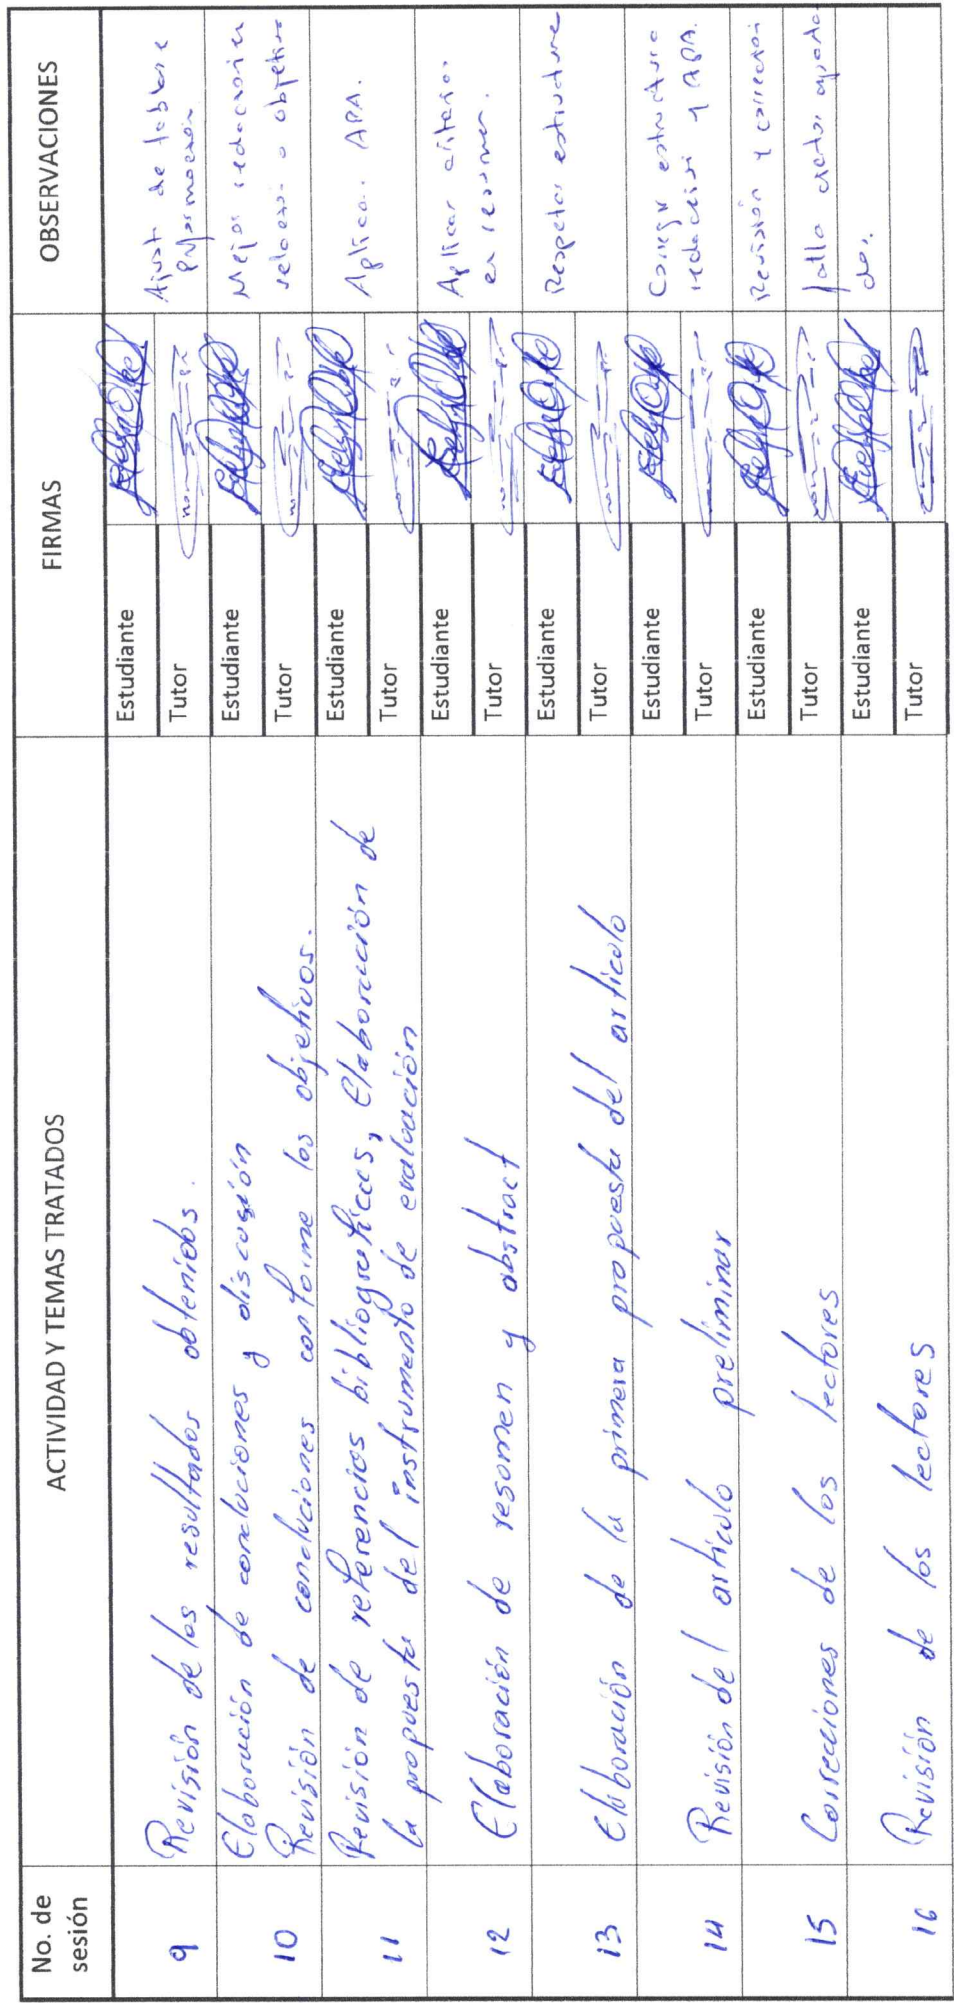 No. de
sesión
ACTIVIDAD Y TEMAS TRATADOS
FIRMAS
OBSERVACIONES
9
Revisión de los resultados obtenidos.
Estudiante
Tutor
Ajust de tablas e
información
10
Elaboración de conclusiones y discusión
Revisión de conclusiones conforme los objetivos.
Estudiante
Tutor
Mejor redacción en
relación a objetivo
11
Revisión de referencias bibliográficas, Elaboración de
la propuesta del instrumento de evaluación
Estudiante
Tutor
Aplicar. APA.
12
Elaboración de resumen y abstract
Estudiante
Tutor
Aplicar criterios
en resumen.
13
Elaboración de la primera propuesta del artículo
Estudiante
Tutor
Respetar estructura
14
Revisión del artículo preliminar
Estudiante
Tutor
Corregir estructura
redacción y APA.
15
Correcciones de los lectores
Estudiante
Tutor
Revisión y corrección
16
Revisión de los lectores
Estudiante
Tutor
falta